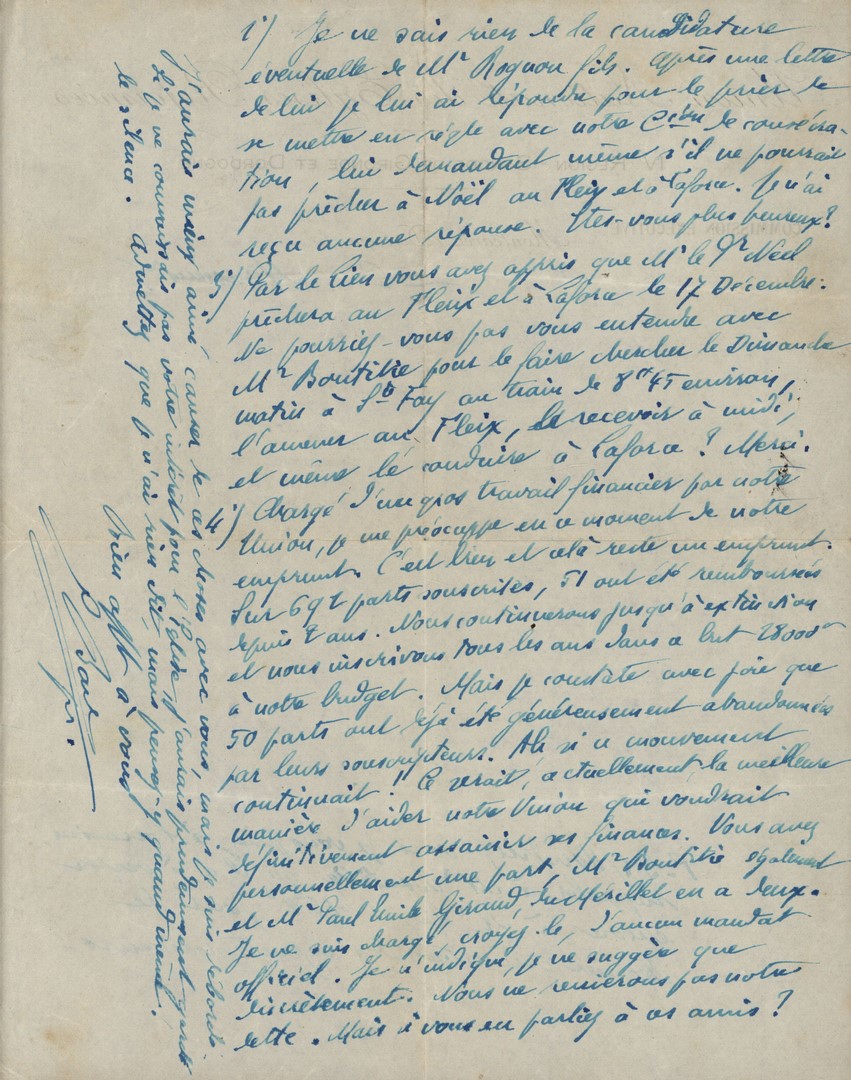 2°) Je ne sais rien de la candidature
éventuelle de Mr Roquon fils. Après une lettre
de lui je lui ai répondu pour le prier de
se mettre en règle avec notre Cion de consécra-
tion, lui demandant même s'il ne pourrait
pas prêcher à Noël au Fleix et à Laforce. Je n'ai
reçu aucune réponse. Etes-vous plus heureux?
3°) Par le lien vous avez appris que Mr le Dr Neel
prêchera au Fleix et à Laforce le 17 Décembre.
Ne pourriez-vous pas vous entendre avec
Mr Boutitie pour le faire chercher le Dimanche
matin à Ste Foy au train de 8h45 environ,
l'amener au Fleix, le recevoir à midi,
et même le conduire à Laforce? Merci.
4°) Chargé d'un gros travail financier par notre
Union, je me préoccupe en ce moment de notre
emprunt. C'est bien et celà reste un emprunt.
Sur 692 parts souscrites, 51 ont été remboursées
depuis 2 ans. Nous continuerons jusqu'à extinction
et nous inscrivons tous les ans dans ce but 28000
à notre budget. Mais je constate avec joie que
50 parts ont déjà été généreusement abandonnées
par leurs souscripteurs. Ah si ce mouvement
continuait!! Ce serait, actuellement, la meilleure
manière d'aider notre Union qui voudrait
définitivement assainir ses finances. Vous avez
personnellement une part, Mr Boutitie également
et Mr Paul Emile Giraud, du Mérillet en a deux.
Je ne suis chargé, croyez-le, d'aucun mandat
officiel. Je n'indique, je ne suggère que
discrètement. Nous ne renierons pas notre
dette. Mais si vous en parliez à ces amis?
J'aurais mieux aimé causer de ces choses avec vous, mais je suis débordé.
Si je ne connaissais pas votre intérêt pour l'Eglise j'aurais prudemment gardé
le silence. Admettez que je n'ai rien dit, mais pensez-y quand même.
Bien afft à vous